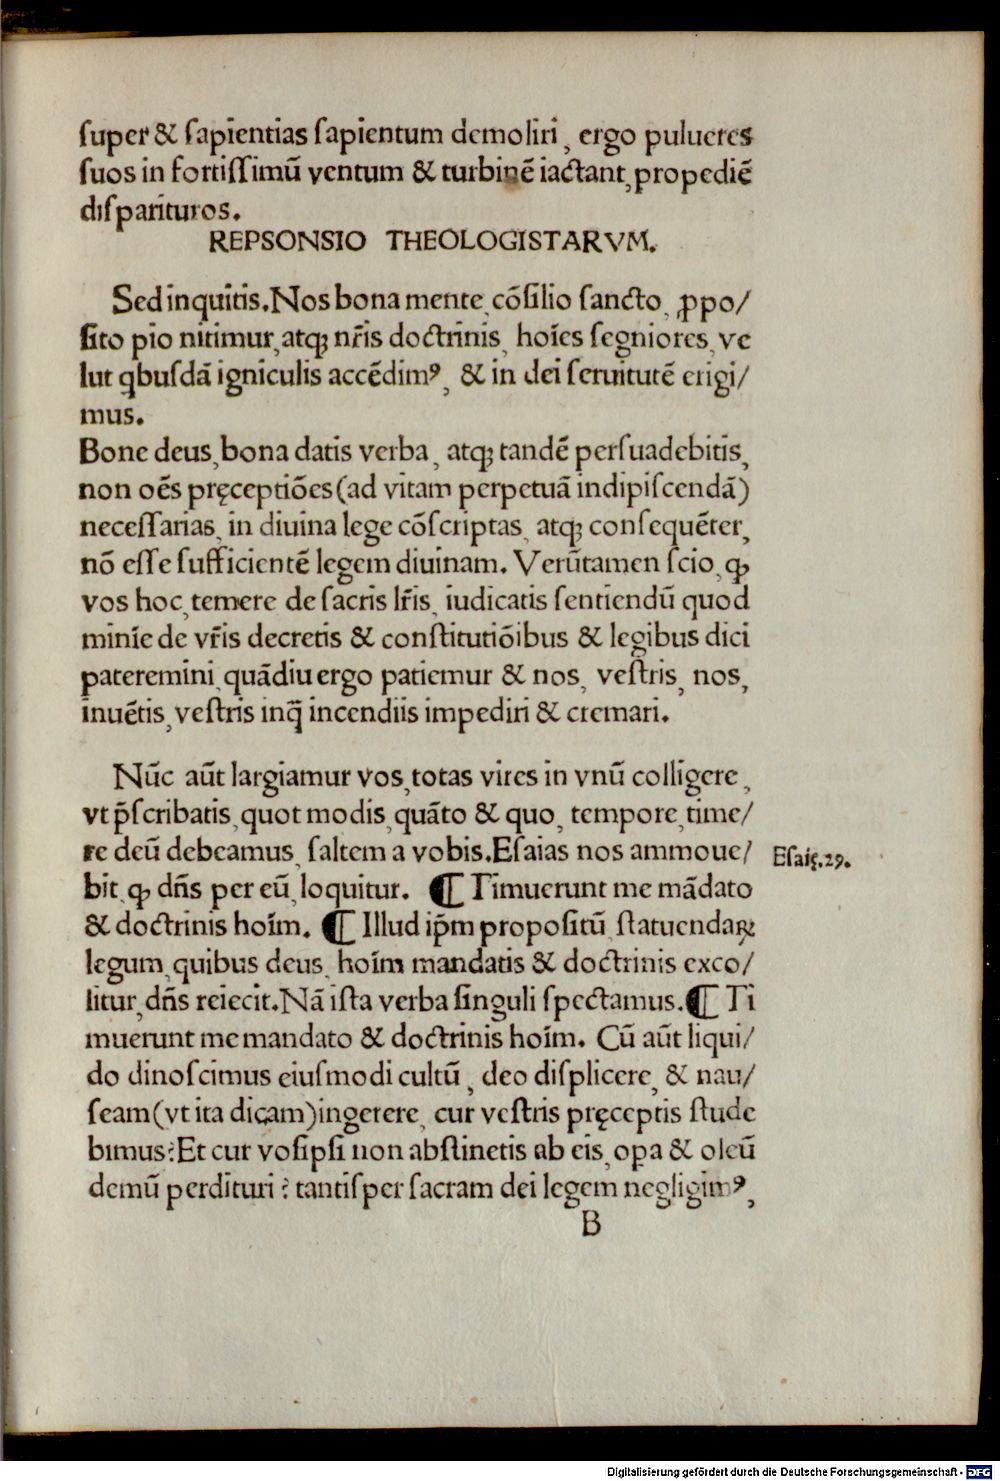 ſuper & ſapientias ſapientum demoliri, ergo pulueres
ſuos in fortiſſimũ ventum & turbinẽ iactant, propediẽ
diſparituros.
REPSONSIO THEOLOGISTARVM.
Sed inquitis. Nos bona mente, cõſilio ſancto, ꝓpo/
ſito pio nitimur, atqꝫ nr̃is doctrinis, hoĩes ſegniores, ve
lut qbuſdã igniculis accẽdimꝰ, & in dei ſeruitutẽ erigi/
mus.
Bone deus, bona datis verba, atqꝫ tandẽ perſuadebitis,
non oẽs pręceptiões (ad vitam perpetuã indipiſcendã)
neceſſarias, in diuina lege cõſcriptas, atqꝫ conſequẽter,
nõ eſſe ſufficientẽ legem diuinam. Verũtamen ſcio, ꝙ
vos hoc, temere de ſacris lr̃is, iudicatis ſentiendũ quod
minĩe de vr̃is decretis & conſtitutiõibus & legibus dici
pateremini, quãdiu ergo patiemur & nos, veſtris, nos,
inuẽtis, veſtris inq̃ incendiis impediri & cremari.
Nũc aũt largiamur vos, totas vires in vnũ colligere,
vt p̃ſcribatis, quot modis, quãto & quo, tempore, time/
re deũ debeamus, ſaltem a vobis. Eſaias nos ammoue/
bit, ꝙ dñs per eũ, loquitur. ¶ Timuerunt me mãdato
& doctrinis hoĩm. ¶ Illud ip̃m propoſitũ, ſtatuendaꝝ
legum, quibus deus, hoĩm mandatis & doctrinis exco/
litur, dñs reiecit. Nã iſta verba ſinguli ſpectamus. ¶ Ti
muerunt me mandato & doctrinis hoĩm. Cũ aũt liqui/
do dinoſcimus eiuſmodi cultũ, deo diſplicere, & nau/
ſeam (vt ita dicam) ingerere, cur veſtris pręceptis ſtude
bimus? Et cur voſipſi non abſtinetis ab eis, oꝑa & oleũ
demũ perdituri? tantiſper ſacram dei legem negligimꝰ,
B
Eſaię. 29.
Digitalisierung gefördert durch die Deutsche Forschungsgemeinschaft - DFG